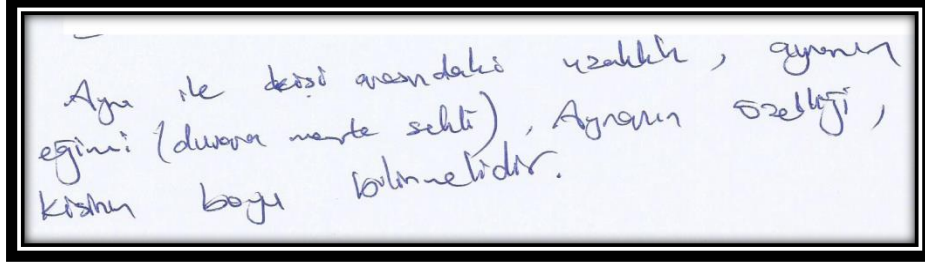 Ayna ile kişi arasındaki uzaklık, aynanın
eğimi (duvara monte şekli), Aynanın özelliği,
kişinin boyu bilinmelidir.